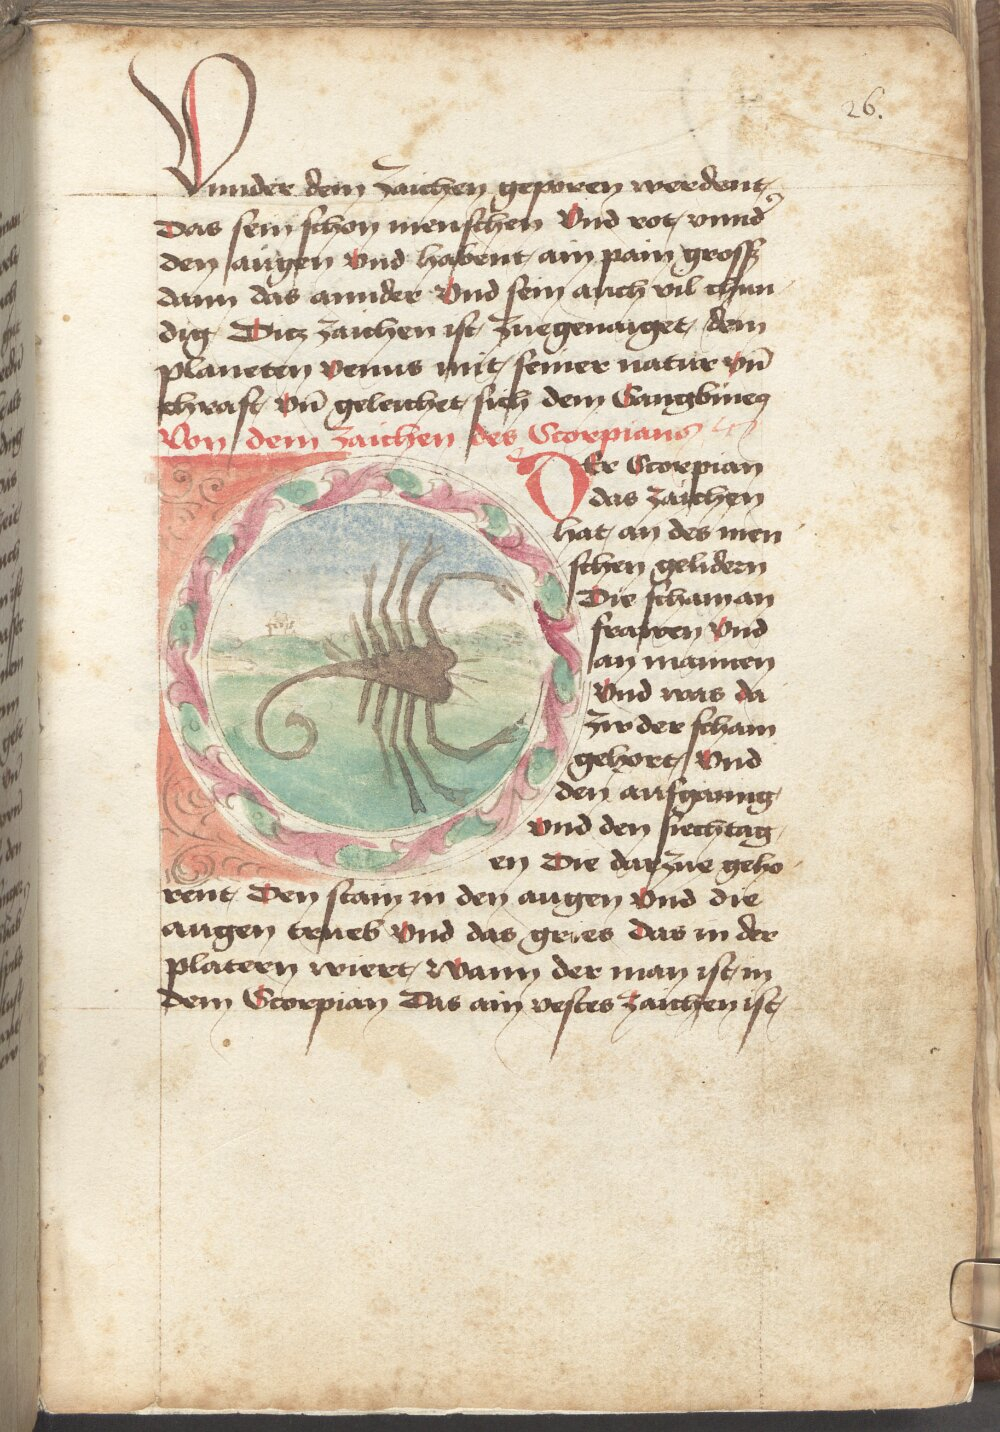 26.
Vnnder dem zaichen geporen werdent
Das sein schon menschen Vnd rot vnnd
den augen Vnd habent ain pain gross
dann das annder Vnd sein auch vil chun
dig Ditz zaichen ist zuegenaiget dem
planeten venus mit seiner natur vn̄
chraft Vn̄ geleichet sich dem
Von dem zaichen des Scorpians
Der Scorpian
das zaichen
hat an des men
schen gelidern
Die scham an
frawen Vnd
an mannen
Vnd was da
zw der scham
gehort Vnd
den ausganng
Vnd den siechtag
en Die darzue geho
rent Den stain in den augen Vnd die
augen trueb Vnd das gries das in der
platern wiert Wann der man ist in
dem Scorpian Das ain vestes zaichen ist